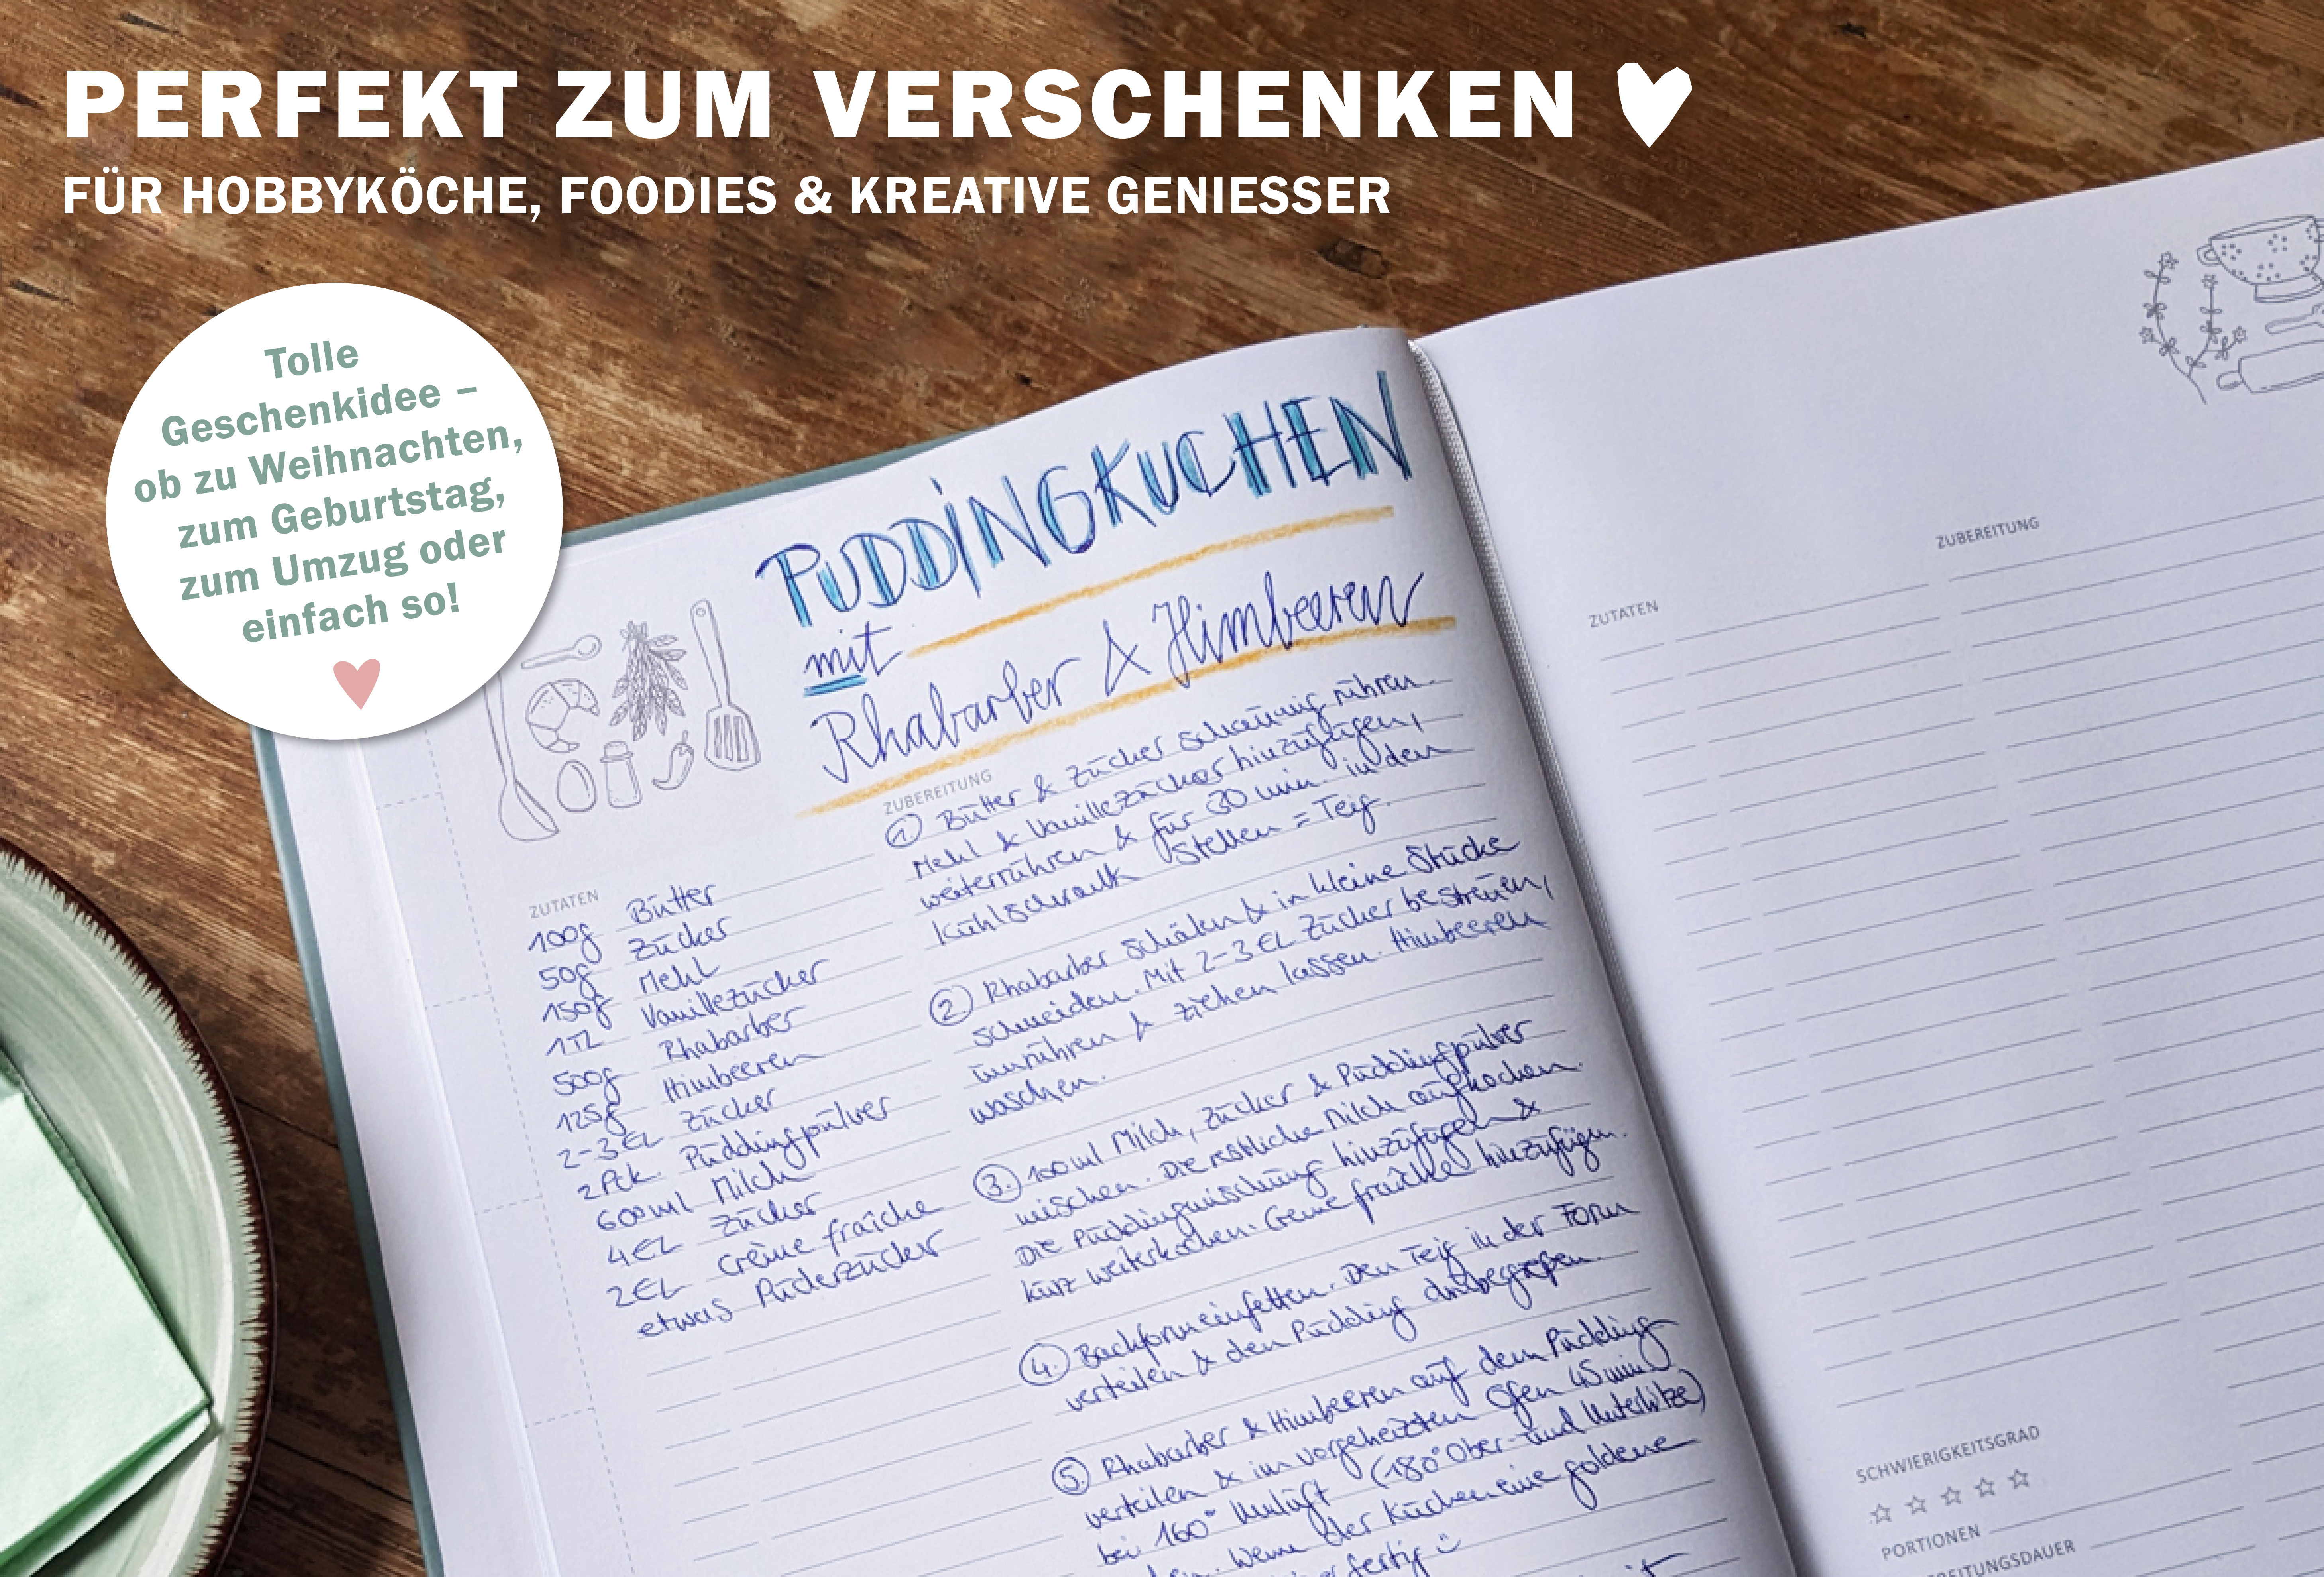 PERFEKT ZUM VERSCHENKEN
FÜR HOBBYKÖCHE, FOODIES & KREATIVE GENIESSER
Tolle
Geschenkidee –
ob zu Weihnachten,
zum Geburtstag,
zum Umzug oder
einfach so!
PUDDINGKUCHEN
mit
Rhabarber & Himbeeren
ZUTATEN
100g Butter
50g Zucker
150g Mehl
1TL Vanillezucker
500g Rhabarber
125g Himbeeren
2-3EL Zucker
2Pck. Puddingpulver
600ml Milch
4EL Zucker
2EL Crème fraîche
etwas Puderzucker
ZUBEREITUNG
1. Butter & Zucker schaumig rühren.
Mehl & Vanillezucker hinzufügen,
weiterrühren & für 30 min. in den
Kühlschrank stellen = Teig.
2. Rhabarber schälen & in kleine Stücke
schneiden. Mit 2-3EL Zucker bestreuen,
umrühren & ziehen lassen. Himbeeren
waschen.
3. 100ml Milch, Zucker & Puddingpulver
mischen. Die restliche Milch aufkochen.
Die Puddingmischung hinzufügen &
kurz weiterkochen. Creme fraîche hinzufügen.
4. Backform einfetten. Den Teig in der Form
verteilen & den Pudding
5. Rhabarber & Himbeeren auf dem Pudding
verteilen & im vorgeheizten Ofen 45min.
bei 160° Umluft (180° Ober- und Unterhitze)
Wenn der Kuchen eine goldene
fertig
ZUTATEN
ZUBEREITUNG
SCHWIERIGKEITSGRAD
PORTIONEN